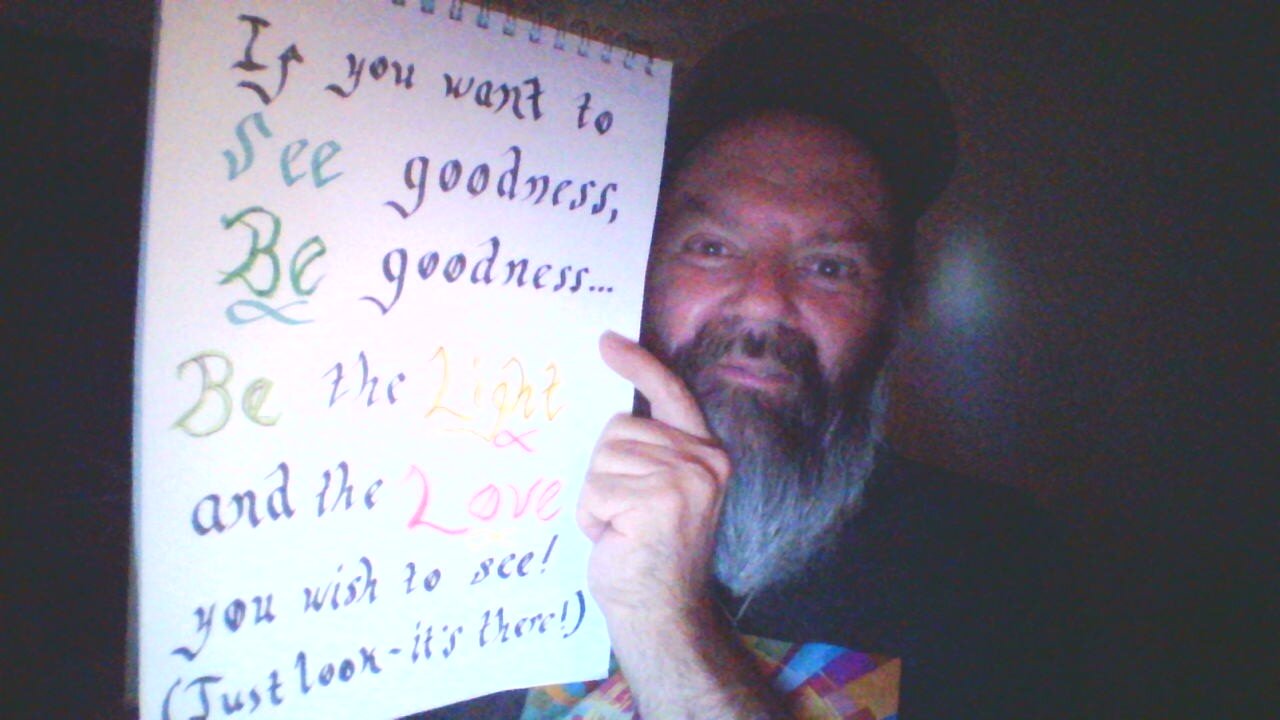 If you want to
See goodness,
Be goodness...
Be the Light
and the Love
you wish to see!
(Just look-it's there!)